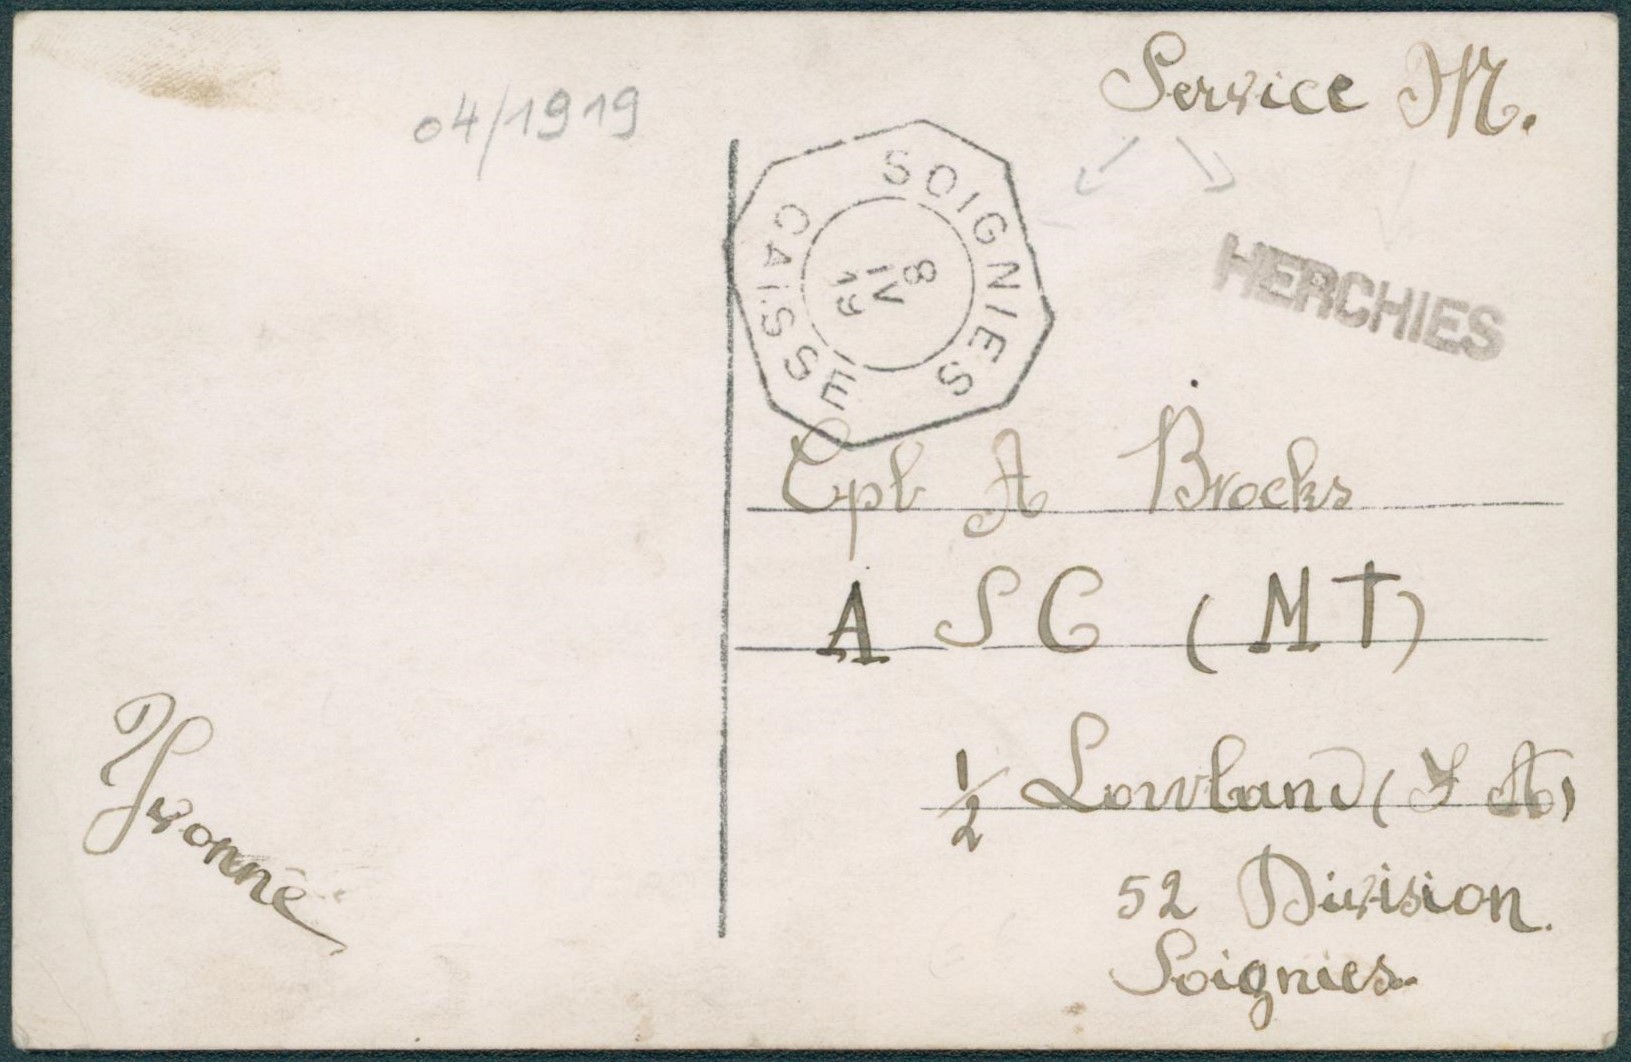 Service M.
04/1919
SOIGNIES
CAISSE
8
IV
19
HERCHIES
Cpl A Brocks
A S C (M T)
1/2 Lowland (F A)
52 Division.
Soignies.
Yvonne